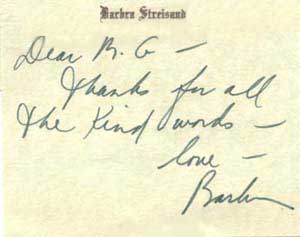 Barbra Streisand
Dear R. G —
thanks for all
the kind words —
love —
Barbra